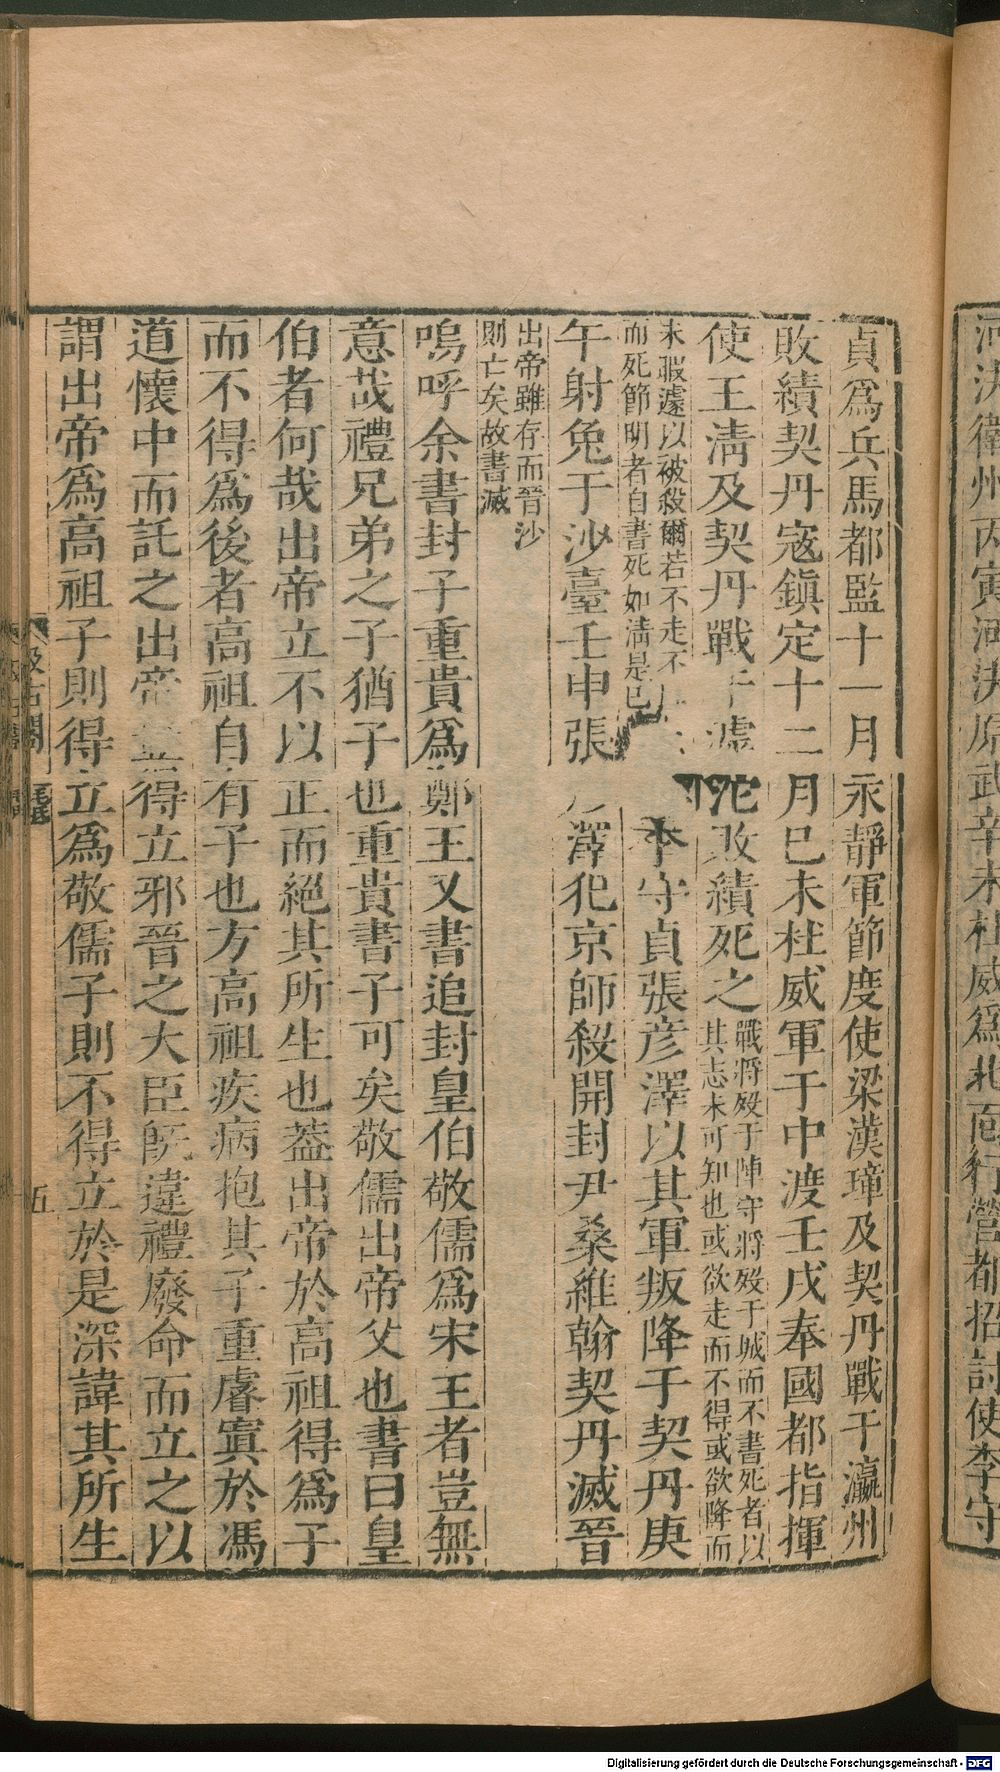 河決衛州丙寅河決原武辛未杜威爲北面行營都招討使李守
貞爲兵馬都監十一月永靜軍節度使梁漢璋及契丹戰于瀛州
敗績契丹寇鎮定十二月己未杜威軍于中渡壬戌奉國都指揮
使王淸及契丹戰于滹沱敗績死之
戰將歿于陣守將歿于城而不書死者以
其志未可知也或欲走而不得或欲降而
未暇遽以被殺爾若不走不
而死節明者自書死如淸是已
李守貞張彦澤以其軍叛降于契丹庚
午射兔于沙臺壬申張彦澤犯京師殺開封尹桑維翰契丹滅晉
出帝雖存而晉沙
則亡矣故書滅
嗚呼余書封子重貴爲鄭王又書追封皇伯敬儒爲宋王者豈無
意哉禮兄弟之子猶子也重貴書子可矣敬儒出帝父也書曰皇
伯者何哉出帝立不以正而絕其所生也葢出帝於高祖得爲子
而不得爲後者高祖自有子也方高祖疾病抱其子重睿寘於馮
道懷中而託之出帝豈得立邪晉之大臣旣違禮廢命而立之以
謂出帝爲高祖子則得立爲敬儒子則不得立於是深諱其所生
汲古閣
毛氏
五
Digitalisierung gefördert durch die Deutsche Forschungsgemeinschaft - DFG